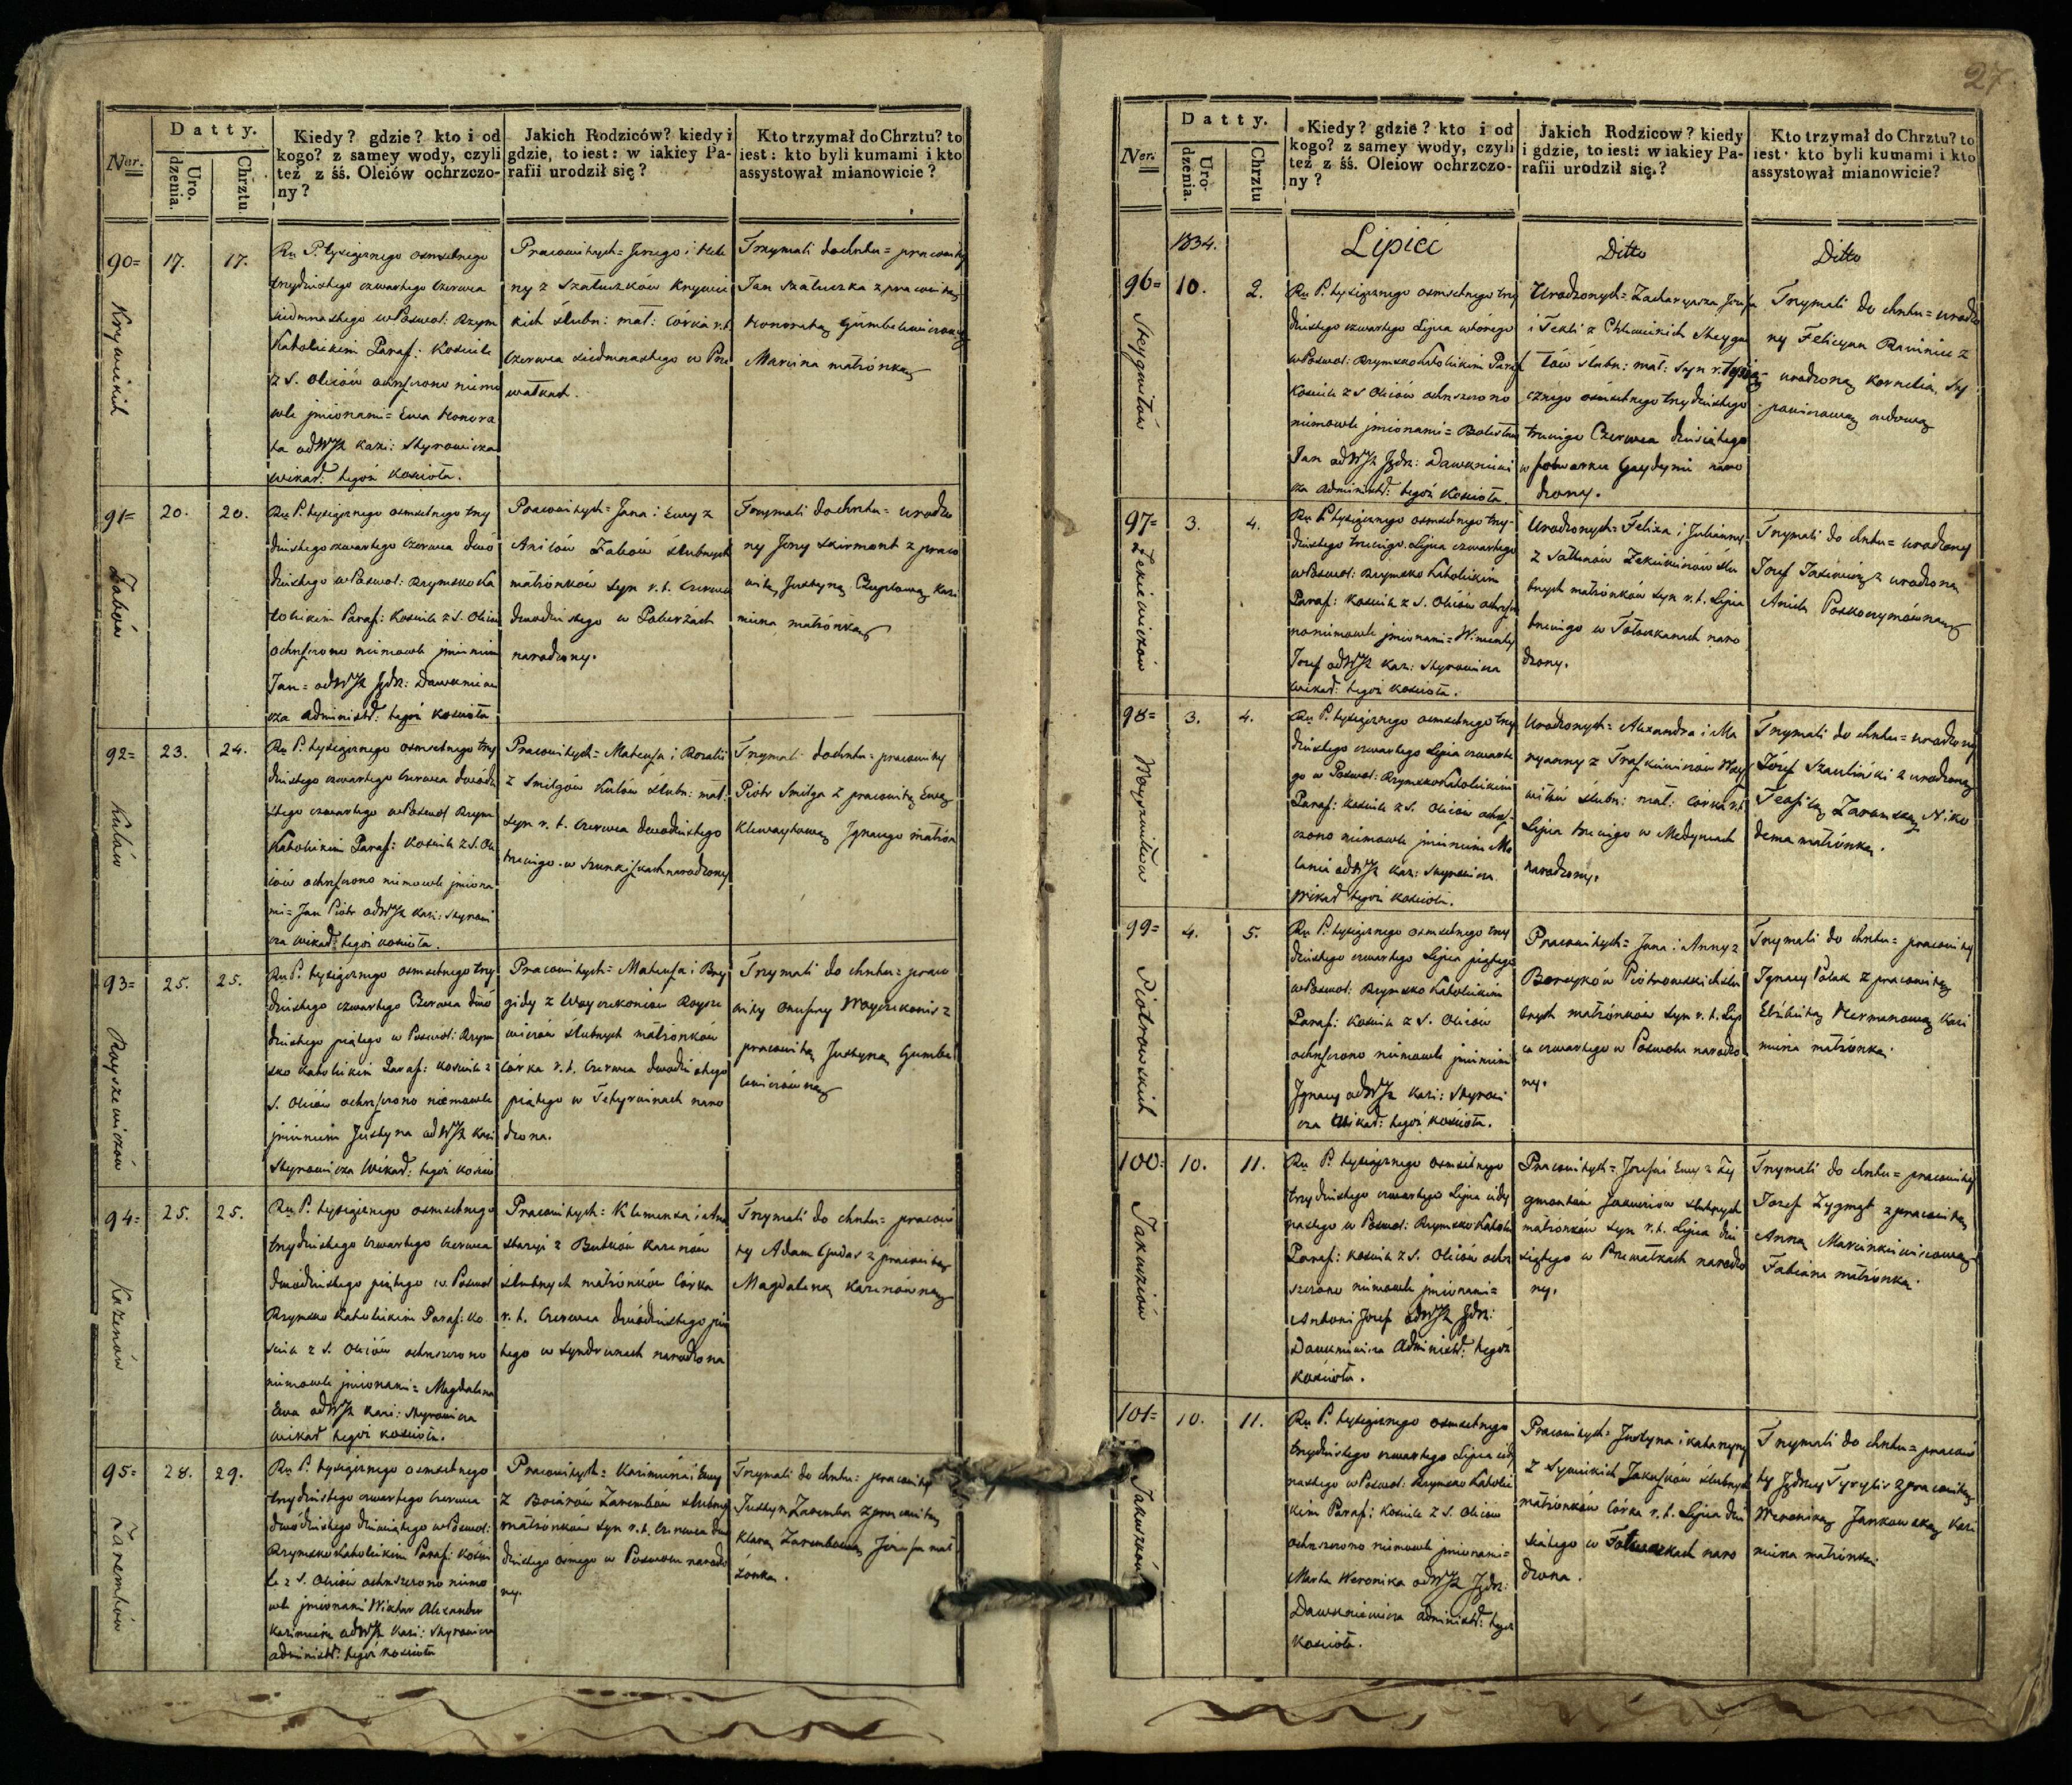 Datty.
Ner.
Uro.
dzenia.
Chrztu.
Kiedy? gdzie? kto i od
kogo? z samey wody, czyli
też z śś. Oleiów ochrzczo-
ny?
Jakich Rodziców? kiedy i
gdzie, to iest: w iakiey Pa-
rafii urodził się?
Kto trzymał do Chrztu? to
iest: kto byli kumami i kto
assystował mianowicie?
90=
Krywickich
17.
17.
Ru P. tysiącznego osmsetnego
trzydziestego czwartego Czerwca
siedmnastego w Poswol: Rzym
Katolickim Paraf: Kosciele
z S. Oleiów ochrzczono niemo
wle jmionami = Ewa Honora
ta od WJX Kazi: Skyrowicza
wikar: tegoż Kościoła.
Pracowitych = Jerzego i Hele
ny z Szatuszków Krywic
kich ślubn: mał: Córka r. t.
Czerwca siedmnastego w Prze
wałkach.
Trzymali do chrztu = pracowity
Jan Szatuszka z pracowitą
Honoratą Gumbelewiczową
Marcina małżonką
91=
Zabów
20.
20.
Ru P. tysiącznego osmsetnego trzy
dziestego czwartego Czerwca dwó
dziestego w Poswol: Rzymsko Ka
tolickim Paraf: Kosciele z S. Oleiów
ochrzczono niemowle jmieniem
Jan = od WJX Jędz: Dawkniewi
cza administr: tegoż Kościoła
Pracowitych = Jana i Ewy z
Anilów Zabów ślubnych
małżonków syn r. t. Czerwca
dwodziestego w Poberżach
narodzony.
Trzymali do chrztu = urodzo
ny Jerzy Skirmont z praco
witą Justyną Czuplową Kazi
mierza małżonką
92=
Kulów
23.
24.
Ru P. tysiącznego osmsetnego trzy
dziestego czwartego Czerwca dwodz
stego czwartego w Poswol Rzym
Katolickim Paraf: Kosciele z S. Ole
iów ochrzczono niemowle jmiona
mi = Jan Piotr od WJX Kazi: Skyrowi
cza wikar: tegoż kościoła.
Pracowitych = Mateusza i Rozalii
z Smilgów Kulów ślubn: mał:
syn r. t. Czerwca dwodziestego
trzeciego w Szunkiszkach narodzony
Trzymali do chrztu = pracowity
Piotr Smilga z pracowitą Ewą
Klewaytową Jgnacego małżon
93=
Royszewiczów
25.
25.
Ru P. tysiącznego osmsetnego trzy
dziestego czwartego Czerwca dwó
dziestego piątego w Poswol: Rzym
sko Katolickim Paraf: Kosciele z
S. Oleiów ochrzczono niemowle
jmieniem Justyna od WJX Kazi
Skyrowicza Wikar: tegoż kościo
Pracowitych = Mateusza i Bry
gidy z Woyczkoniów Roysze
wiczów ślubnych małżonków
córka r. t. Czerwca dwodziestego
piątego w Tetyrwinach naro
dzona.
Trzymali do chrztu = praco
wity Onufry Woyczkonis z
pracowitą Justyną Gumbe
lewiczówną
94=
Kazenów
25.
25.
Ru P. tysiącznego osmsetnego
trzydziestego czwartego Czerwca
dwodziestego piątego w Poswol
Rzymsko Katolickim Paraf: Ko
sciele z S. Oleiów ochrzczono
niemowle jmionami = Magdalena
Ewa od WJX Kazi: Skyrowicza
wikar tegoż kościoła.
Pracowitych = Klemensa i Ana
stazyi z Butków Kazenów
ślubnych małżonków Córka
r. t. Czerwca dwódziestego pią
tego w Syndrunach narodzona
Trzymali do chrztu = pracowi
ty Adam Gudas z pracowitą
Magdaleną Kazenówną
95=
Zarembów
28.
29.
Ru P. tysiącznego osmsetnego
trzydziestego czwartego Czerwca
dwódziestego dziewiątego w Poswol:
Rzymsko Katolickim Paraf: Koście
le z S. Oleiów ochrzczono niemo
wle jmionami Wiktor Alexander
Kazimierz od WJX Kazi: Skyrowicza
administr: tegoż kościoła
Pracowitych = Kazimierza i Ewy
z Boianów Zarembów ślubnych
małżonków syn r. t. Czerwca dwo
dziestego osmego w Poswolu narodzo
ny.
Trzymali do chrztu = pracowity
Justyn Zaremba z pracowitą
Klarą Zarembową Józefa mał
żonką.
27.
Datty.
Ner.
Uro-
dzenia.
Chrztu
Kiedy? gdzie? kto i od
kogo? z samey wody, czyli
też z śś. Oleiow ochrzczo-
ny?
Jakich Rodzicow? kiedy
i gdzie, to iest: w iakiey Pa-
rafii urodził się.?
Kto trzymał do Chrztu? to
iest: kto byli kumami i kto
assystował mianowicie?
1834.
Lipiec
Ditto
Ditto
96=
Steygwiłów
10.
2.
Ru P. tysiącznego osmsetnego trzy
dziestego czwartego Lipca wtórego
w Poswol: Rzymsko Katolickim Paraf
Kościele z S Oleiów ochrzczono
niemowle jmionami = Bolesław
Jan od WJX Jędz: Dawkniewi
cza administr: tegoż Kościoła
Urodzonych = Zacharyasza Józefa
i Tekli z Chlewickich Steygwi
łów ślubn: mał: syn r. tysią
cznego osmsetnego trzydziestego
trzeciego Czerwca dziesiątego
w folwarku Gaydymi naro
dzony.
Trzymali do chrztu = urodzo
ny Felicyan Rawinicz z
urodzoną Kornelią
wdową
97=
Zekiewiczów
3.
4.
Ru P. tysiącznego osmsetnego trzy-
dziestego czwartego Lipca czwartego
w Poswol: Rzymsko Katolickim
Paraf: Kosciele z S. Oleiów ochrzczo
no niemowle jmionami = Wincenty
Jozef od WJX Kazi: Skyrowicza
wikar: tegoż kościoła.
Urodzonych = Felixa i Julianny
z Zekiewiczów ślu
bnych małżonków syn r. t. Lipca
trzeciego w Tołoczkanach naro
dzony.
Trzymali do chrztu = urodzony
Jozef Jasiewicz z urodzoną
Anielą
98=
Woyswiłłów
3.
4.
Ru P. tysiącznego osmsetnego trzy
dziestego czwartego Lipca czwarte
go w Poswol: Rzymsko Katolickim
Paraf: Kosciele z S. Oleiów ochrz
czono niemowle jmieniem Me
lania od WJX Kazi: Skyrowicza
wikar tegoż kościoła.
Urodzonych = Alexandra i Ma
ryanny z Traskiewiczów Woys
wiłłów ślubn: mał: córka r. t.
Lipca trzeciego w Medyniach
narodzony.
Trzymali do chrztu = urodzony
Józef Szauliński z urodzoną
Teofilą Zaranską Niko
dema małżonką.
99=
Piotrowskich
4.
5.
Ru P. tysiącznego osmsetnego trzy
dziestego czwartego Lipca piątego
w Poswol: Rzymsko Katolickim
Paraf: Kosciele z S. Oleiów
ochrzczono niemowle jmieniem
Jgnacy od WJX Kazi: Skyrowi
cza Wikar: tegoż kościoła.
Pracowitych = Jana i Anny z
Boreyków Piotrowskich ślu
bnych małżonków syn r. t. Lip
ca czwartego w Poswolu narodzo
ny.
Trzymali do chrztu = pracowity
Jgnacy Polak z pracowitą
Elżbietą Hermanową Kazi
mierza małżonką.
100.
Jakuziów
10.
11.
Ru P. tysiącznego osmsetnego
trzydziestego czwartego Lipca iede
nastego w Poswol: Rzymsko Katolic
Paraf: Kosciele z S. Oleiów ochr
szczono niemowle jmionami =
Antoni Jozef od WJX Jędz:
Dawkniewicza Administr: tegoż
kościoła.
Pracowitych = Jozefa i Ewy z Zy
gmontów Jakuziów ślubnych
małżonków syn r. t. Lipca dzie
siątego w Przewałkach narodzo
ny.
Trzymali do chrztu = pracowity
Jozef Zygmąt z pracowitą
Anną Marcinkiewiczową
Fabiana małżonką.
101=
Jakuszków
10.
11.
Ru P. tysiącznego osmsetnego
trzydziestego czwartego Lipca iede
nastego w Poswol: Rzymsko Katolic
kim Paraf: Kosciele z S. Oleiów
ochrzczono niemowle jmionami =
Marta Weronika od WJX Jędz:
Dawkniewicza administr: tegoż
kościoła.
Pracowitych = Justyna i Katarzyny
z Sywickich Jakuszków ślubnych
małżonków Córka r. t. Lipca dzie
siątego w naro
dzona.
Trzymali do chrztu = pracowi
ty Jędrzey Tyrylis z pracowitą
Weroniką Jankowską Kazi
mierza małżonką.